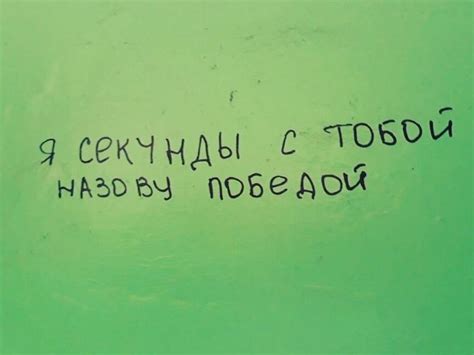 Я СЕКУНДЫ С ТОБОЙ
НАЗОВУ ПОБЕДОЙ